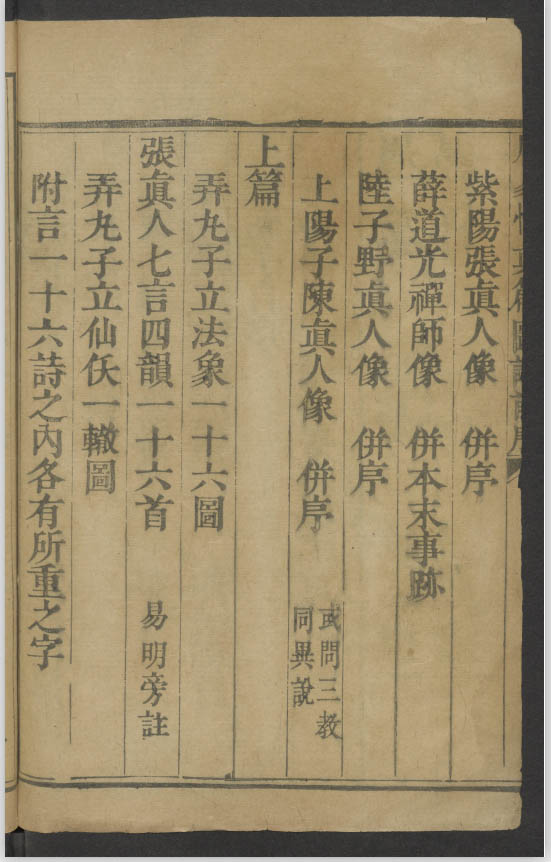 紫陽張眞人像　併序
薛道光禪師像　併本末事跡
陸子野眞人像　併序
上陽子陳眞人像　併序　或問三教
同異說
上篇
弄丸子立法象一十六圖
張眞人七言四韻一十六首　易明旁註
弄丸子立仙仸一轍圖
附言一十六詩之內各有所重之字